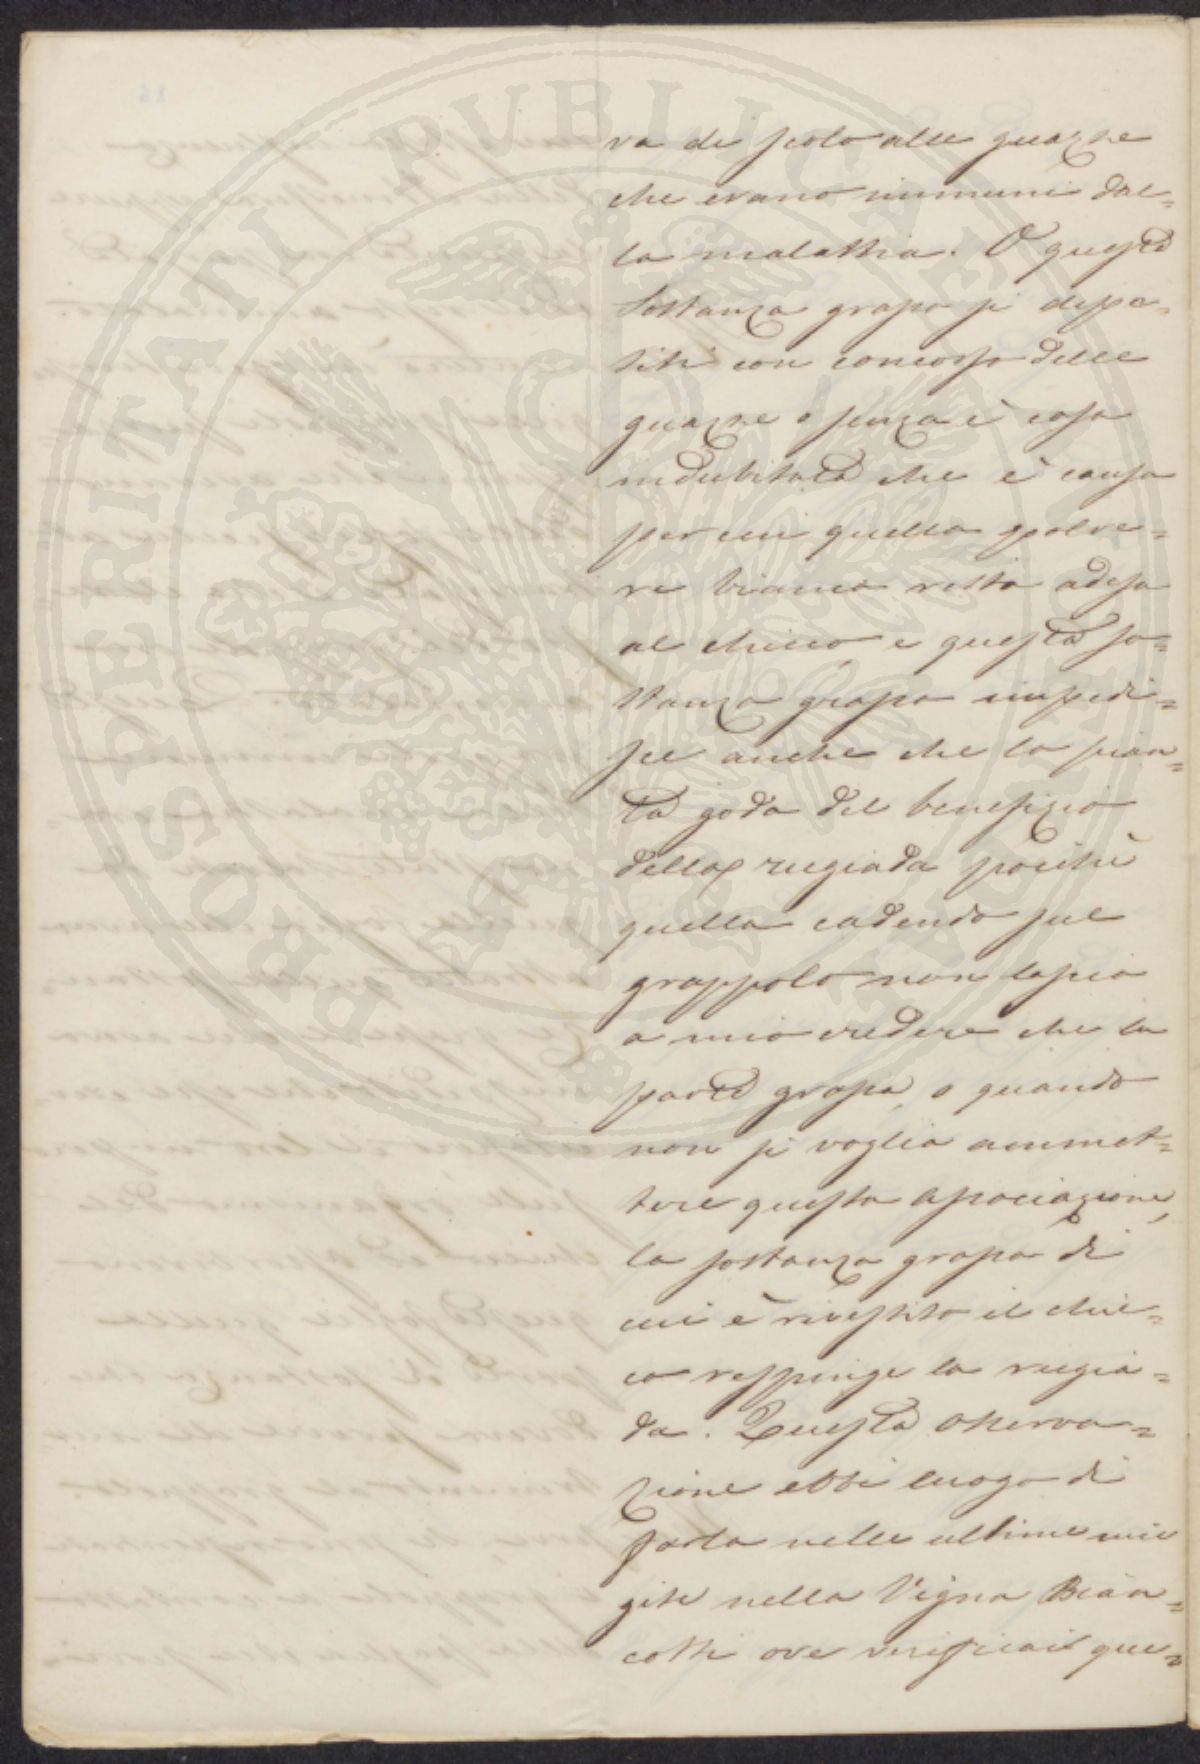 va di scolo alle guazze
che erano immuni dal=
la malattia. O questa
sostanza grassa si depo=
siti con concorso delle
guazze o senza è cosa
indubitata che è causa
per cui quella polve=
re bianca resta adesa
al chicco e questa so=
stanza grassa impedi=
sce anche che la pian=
ta goda del benefizio
della rugiada poichè
quella cadendo sul
grappolo non lascia
a mio credere che la
parte grassa, o quando
non si voglia ammet=
tere questa associazione,
la sostanza grassa di
cui è rivestito il chic=
co respinge la rugia=
da. Questa osserva=
zione ebbi luogo di
farla nelle ultime mie
gite nella Vigna Bian=
cotti ove verificai que=
PROSPERITATI PUBLICAE AUGENDAE